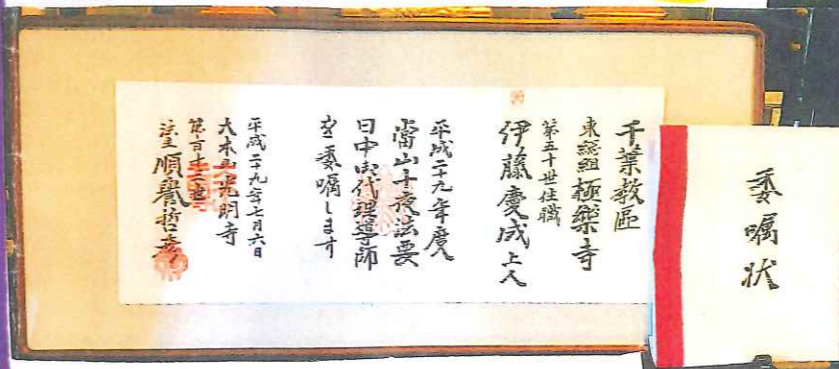 千葉教區
東総組極樂寺
第五十世住職
伊藤慶成上人
平成二十九年度
當山十夜法要
日中御代理導師
を委嘱します
平成二十九年七月六日
大本山光明寺
第百十二世
法主順譽哲雄
委嘱状